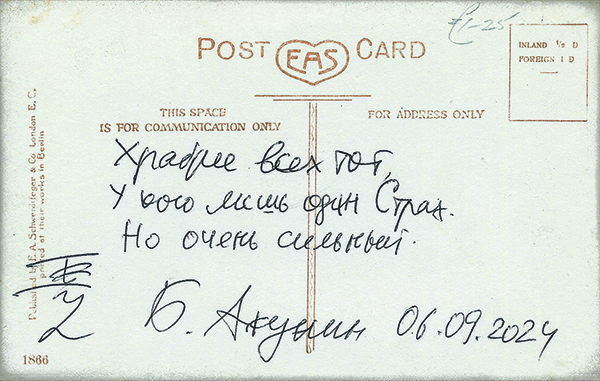 £1-25
POST EAS CARD
INLAND ½ D
FOREIGN 1 D
THIS SPACE
IS FOR COMMUNICATION ONLY
FOR ADDRESS ONLY
Храбрее всех тот,
У кого лишь один Страх.
Но очень сильный.
Б. Акунин 06.09.2024
Published by E. A. Schwerdtfeger & Co. London E. C.
printed at their works in Berlin
1866